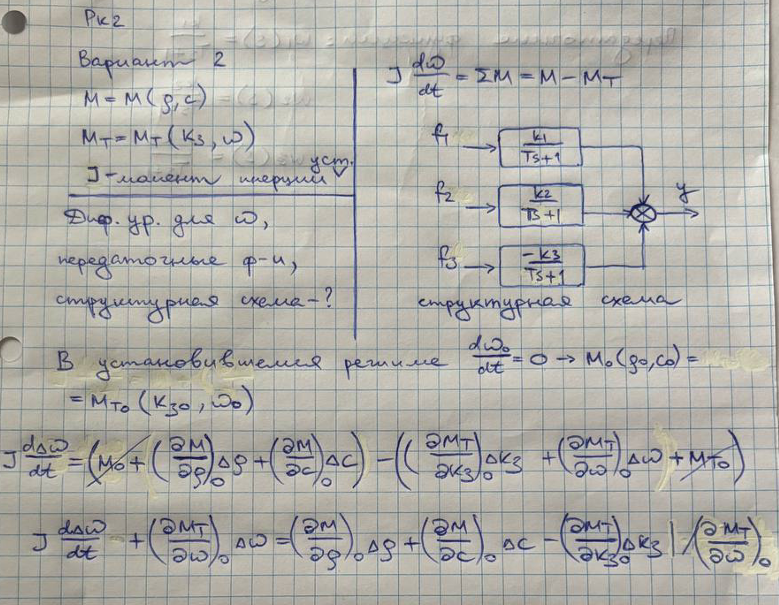 Рк2
Вариант 2
M = M(ρ, c)
Mт = Mт(Kз, ω)
J - момент инерции уст.
Диф. ур. для ω,
передаточные ф-и,
структурная схема - ?
J dω/dt = ΣM = M - Mт
f1 → k1/(Ts+1)
f2 → k2/(Ts+1)
y
f3 → -k3/(Ts+1)
структурная схема
В установившемся режиме dω0/dt = 0 → M0(ρ0, c0) =
= Mт0(Kз0, ω0)
J dΔω/dt = (M0 + (∂M/∂ρ)0 Δρ + (∂M/∂c)0 Δc) - ((∂Mт/∂Kз)0 ΔKз + (∂Mт/∂ω)0 Δω + Mт0)
J dΔω/dt + (∂Mт/∂ω)0 Δω = (∂M/∂ρ)0 Δρ + (∂M/∂c)0 Δc - (∂Mт/∂Kз)0 ΔKз | /(∂Mт/∂ω)0